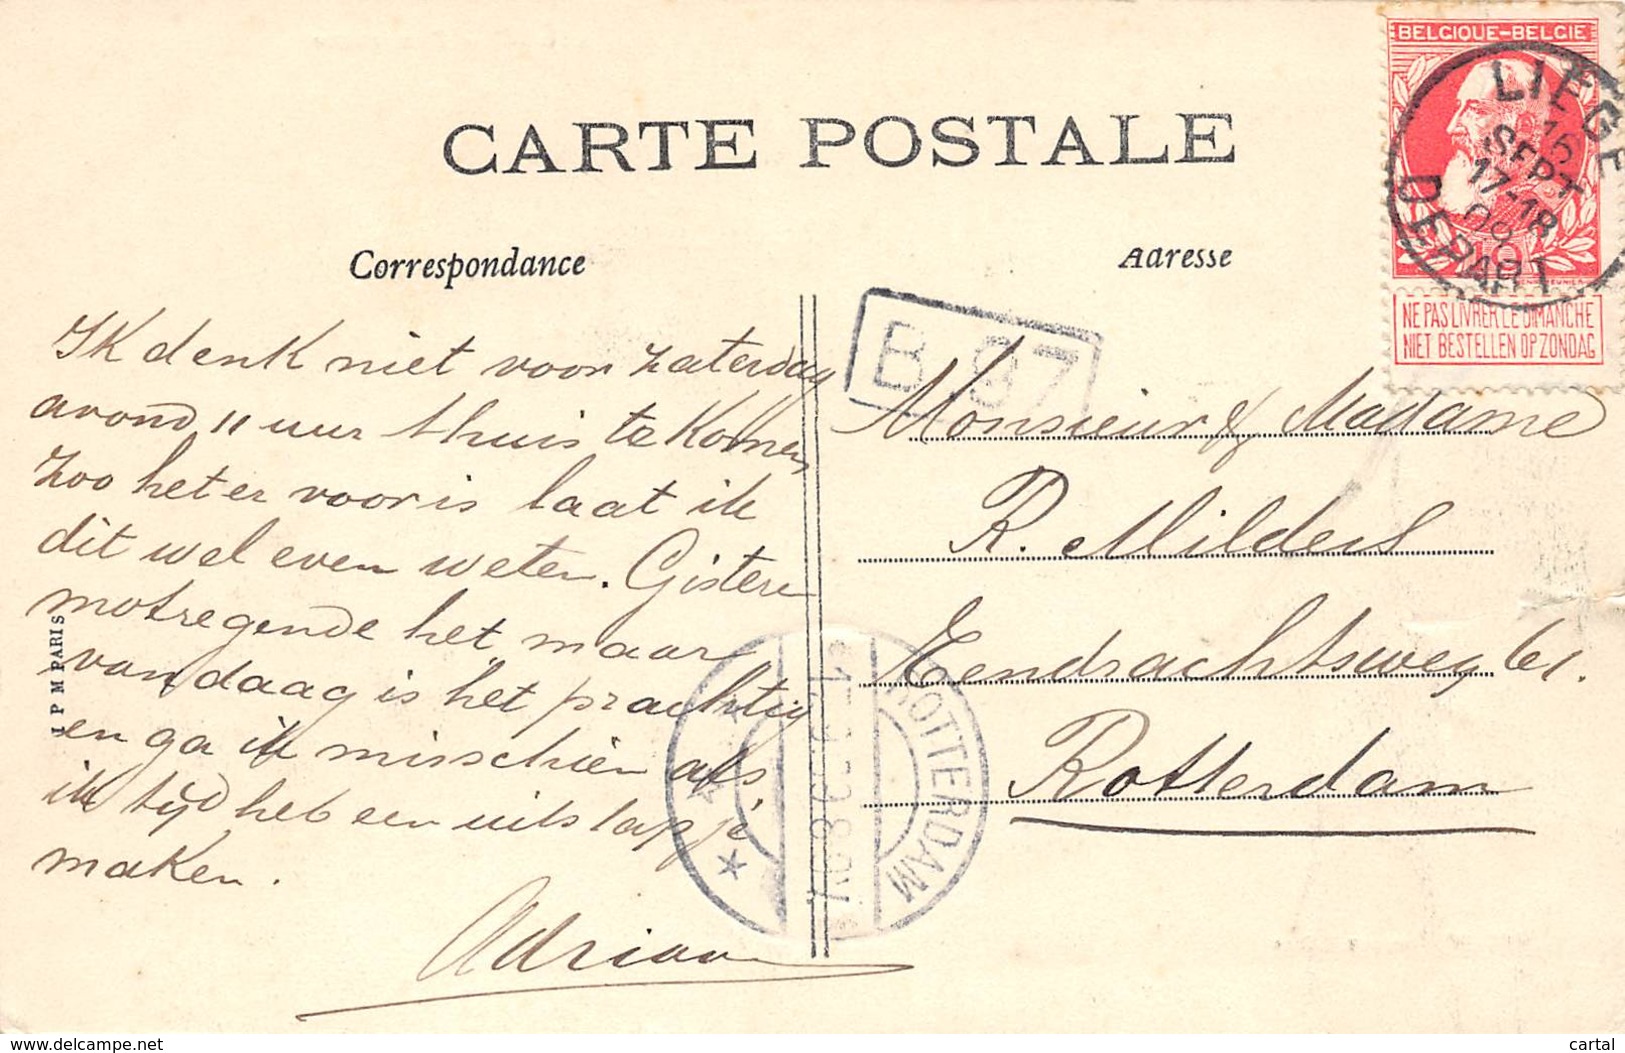 BELGIQUE-BELGIE
LIEGE
16
SEPT
17-18
DEPART
NE PAS LIVRER LE DIMANCHE
NIET BESTELLEN OP ZONDAG
CARTE POSTALE
Correspondance
Adresse
B 97
Ik denk niet voor zaterdag
avond 11 uur thuis te komen,
zoo het er voor is laat ik
dit wel even weten. Gisteren
motregende het, maar
vandaag is het prachtig
en ga ik misschien als
ik tijd heb een uitslapje
maken.
Adriaan
Monsieur & Madame
R. Milders
Eendrachtsweg 61.
Rotterdam
ROTTERDAM
I P M PARIS
delcampe.net
cartal